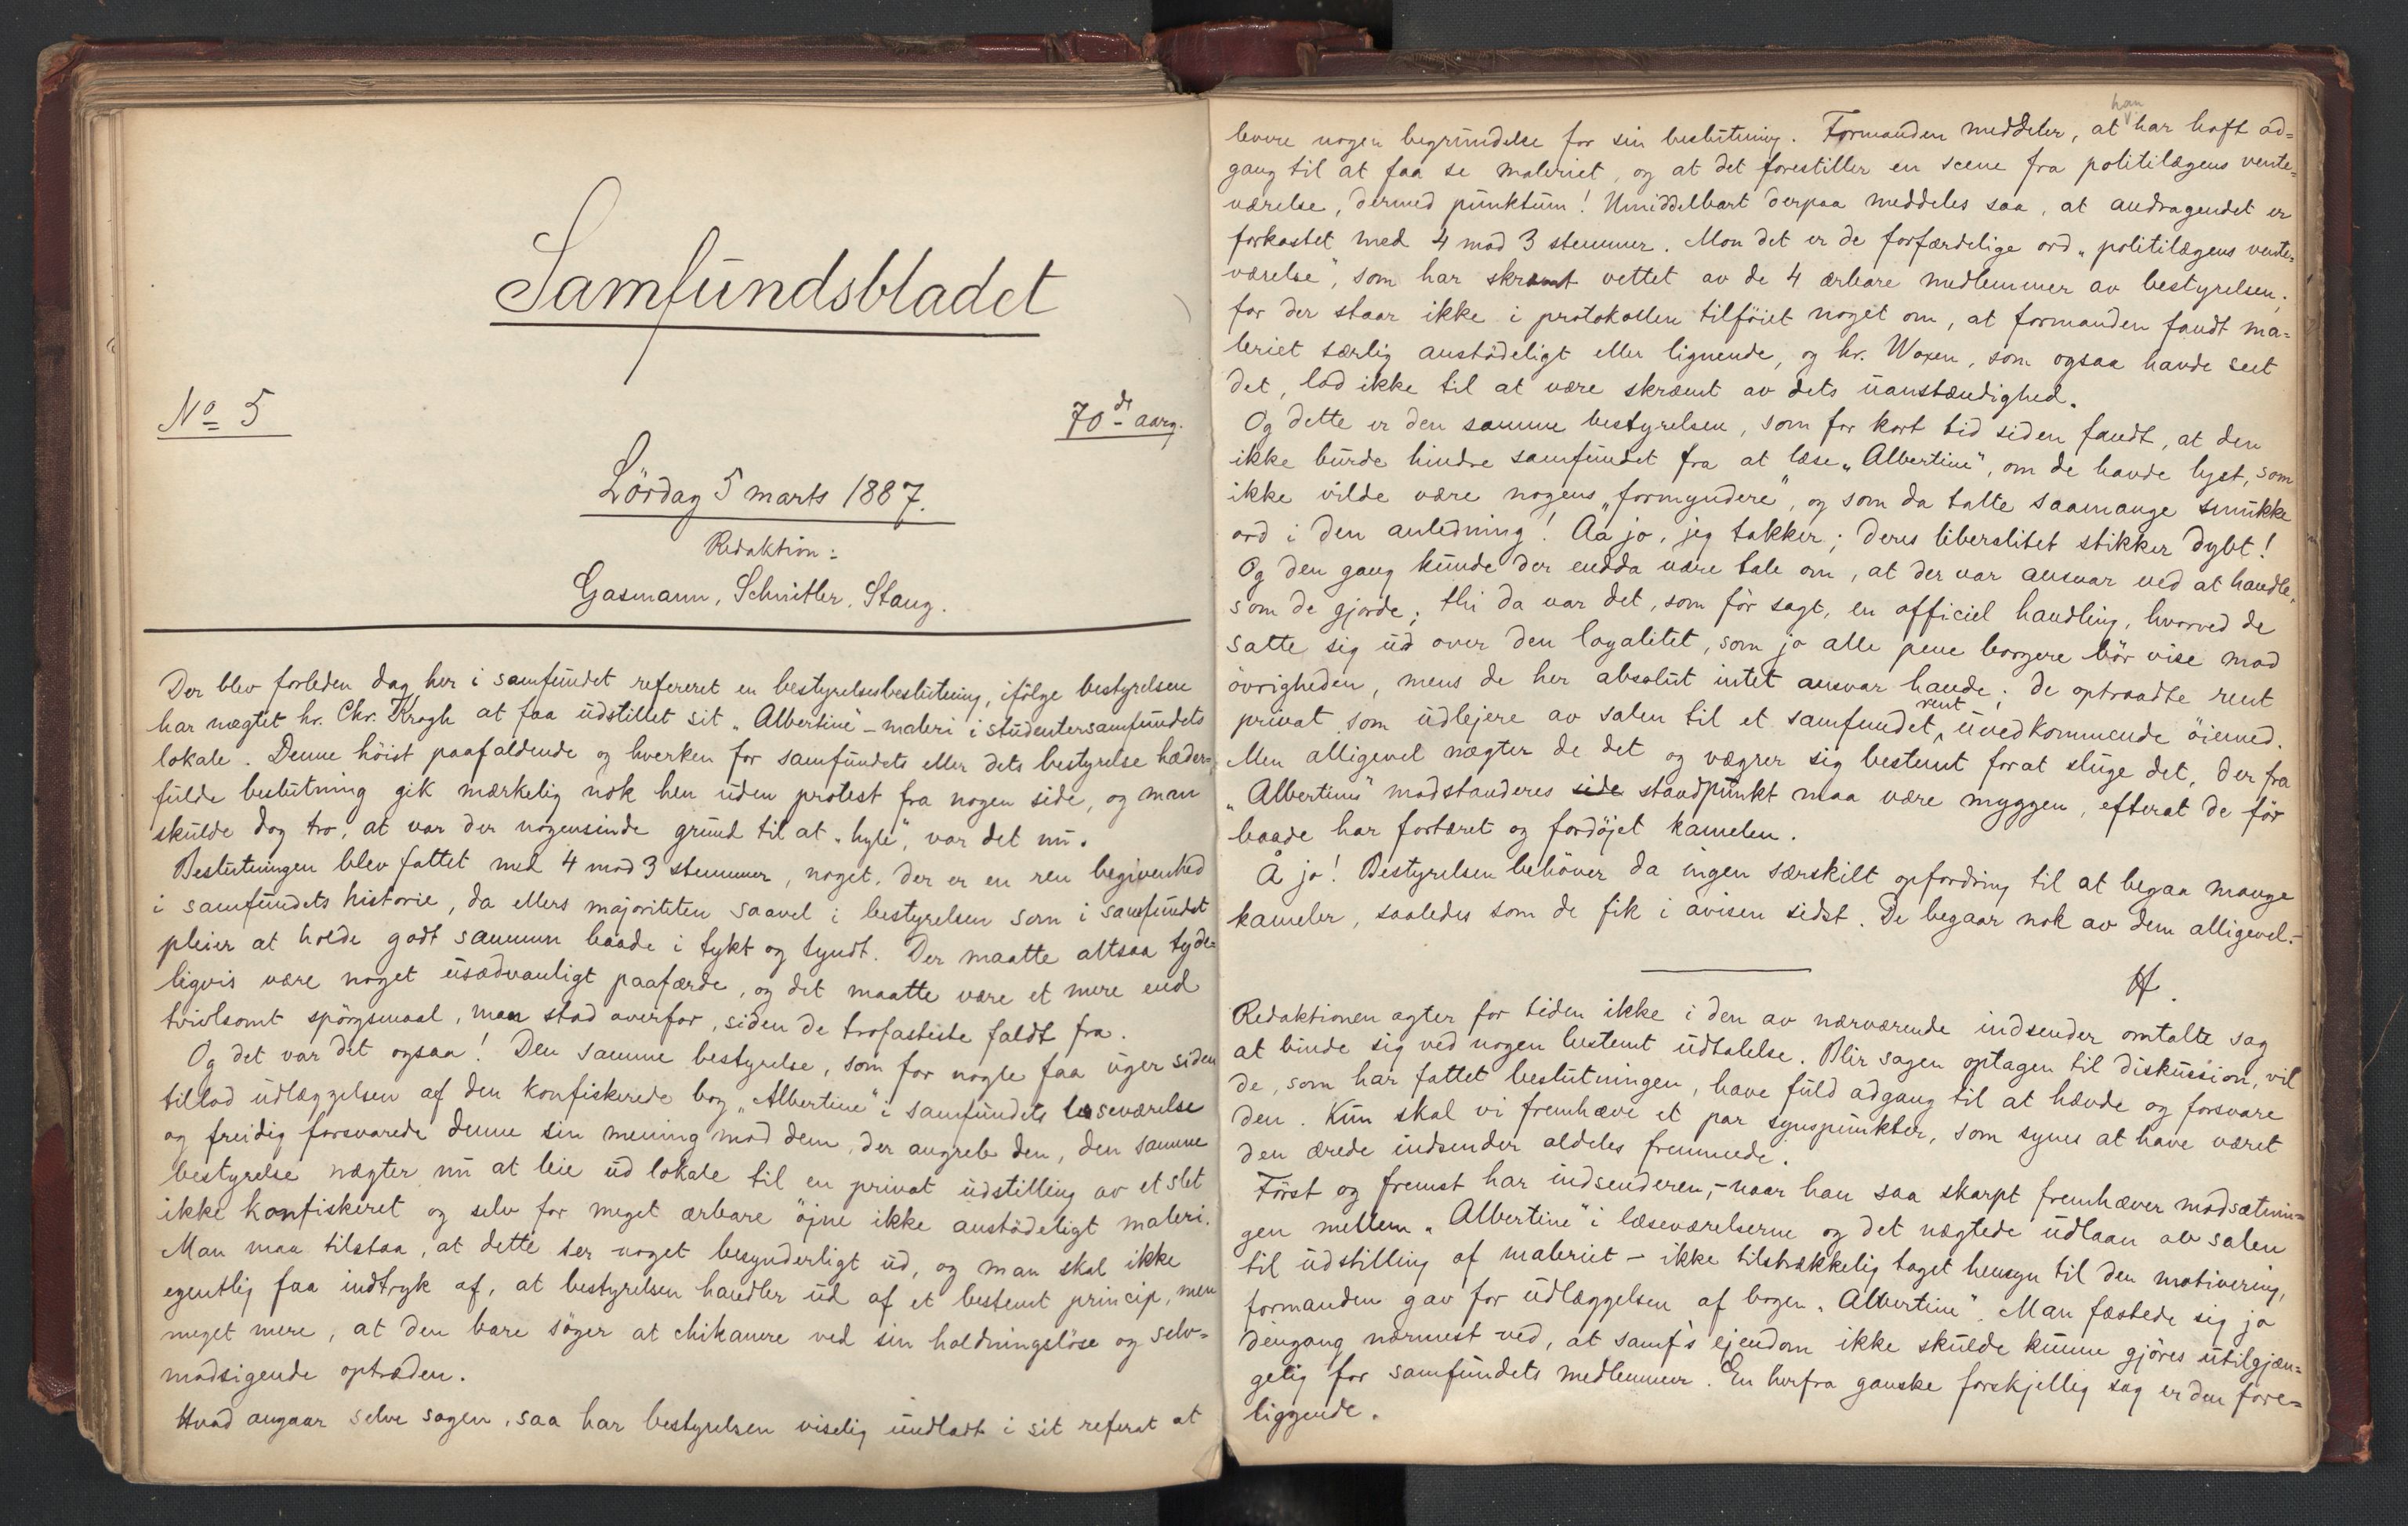 Samfundsbladet
No 5
70de aarg.
Lördag 5 marts 1887.
Redaktion:
Gasmann, Schnitler, Stang.
Der blev forleden dag her i samfundet refereret en bestyrelsesbeslutning, ifölge bestyrelsen
har nægtet hr. Chr. Krogh at faa udstillet sit „Albertine"-maleri i studentersamfundets
lokale. Denne höist paafaldende og hverken for samfundets eller dets bestyrelse hæder=
fulde beslutning gik mærkelig nok hen uden protest fra nogen side, og man
skulde dog tro, at var der nogensinde grund til at „hyle", var det nu.
Beslutningen blev fattet med 4 mod 3 stemmer, noget, der er en ren begivenhed
i samfundets historie, da ellers majoriteten saavel i bestyrelsen som i samfundet
pleier at holde godt sammen baade i tykt og tyndt. Der maatte altsaa tyde=
ligvis være noget usædvanligt paafærde, og det maatte være et mere end
tvivlsomt spörgsmaal, man stod overfor, siden de trofasteste faldt fra.
Og det var det ogsaa! Den samme bestyrelse, som for nogle faa uger siden
tillod udlæggelsen af den konfiskerede bog „Albertine" i samfundets læseværelse
og freidig forsvarede denne sin mening mod dem, der angreb den, den samme
bestyrelse nægter nu at leie ud lokale til en privat udstilling av et slet
ikke konfiskeret og selv for meget ærbare öjne ikke anstödeligt maleri.
Man maa tilstaa, at dette ser noget besynderligt ud, og man skal ikke
egentlig faa indtryk af, at bestyrelsen handler ud af et bestemt princip, men
meget mere, at den bare söger at chikanere ved sin holdningslöse og selv=
modsigende optræden.
Hvad angaar selve sagen, saa har bestyrelsen viselig undladt i sit referat at
levere nogen begrundelse for sin beslutning. Formanden meddeler, at han har haft ad=
gang til at faa se maleriet, og at det forestiller en scene fra politilægens vente=
værelse, dermed punktum! Umiddelbart derpaa meddeles saa, at andragendet er
forkastet med 4 mod 3 stemmer. Mon det er de forfærdelige ord „politilægens vente=
værelse", som har skræmt vettet av de 4 ærbare medlemmer av bestyrelsen;
for der staar ikke i protokollen tilföiet noget om, at formanden fandt ma=
leriet særlig anstödeligt eller lignende, og hr. Woxen, som ogsaa havde seet
det, lod ikke til at være skræmt av dets uanstændighed.
Og dette er den samme bestyrelsen, som for kort tid siden fandt, at den
ikke burde hindre samfundet fra at læse „Albertine", om de havde lyst, som
ikke vilde være nogens „formyndere", og som da talte saamange smukke
ord i den anledning! Aa jo, jeg takker; deres liberalitet stikker dybt!
Og den gang kunde der endda være tale om, at der var ansvar ved at handle,
som de gjorde; thi da var det, som för sagt, en officiel handling, hvorved de
satte sig ud over den loyalitet, som jo alle pene borgere bör vise mod
övrigheden, mens de her absolut intet ansvar havde; de optraadte rent
privat som udlejere av salen til et samfundet rent uvedkommende öiemed.
Men alligevel nægter de det og vægrer sig bestemt forat sluge det, der fra
„Albertines" modstanderes side standpunkt maa være myggen, efterat de för
baade har fortæret og fordöjet kamelen.
Å jo! Bestyrelsen behöver da ingen særskilt opfordring til at begaa mange
kameler, saaledes som de fik i avisen sidst. De begaar nok av dem alligevel.-
H.
Redaktionen agter for tiden ikke i den av nærværende indsender omtalte sag
at binde sig ved nogen bestemt udtalelse. Blir sagen optagen til diskussion, vil
de, som har fattet beslutningen, have fuld adgang til at hævde og forsvare
den. Kun skal vi fremhæve et par synspunkter, som synes at have været
den ærede indsender aldeles fremmede.
Först og fremst har indsenderen,-naar han saa skarpt fremhæver modsætnin=
gen mellem „Albertine" i læseværelserne og det nægtede udlaan av salen
til udstilling af maleriet - ikke tilstrækkelig taget hensyn til den motivering,
formanden gav for udlæggelsen af bogen „Albertine". Man fæstede sig jo
dengang nærmest ved, at samf's ejendom ikke skulde kunne gjöres utilgjæn=
gelig for samfundets medlemmer. En herfra ganske forskjellig sag er den fore=
liggende.